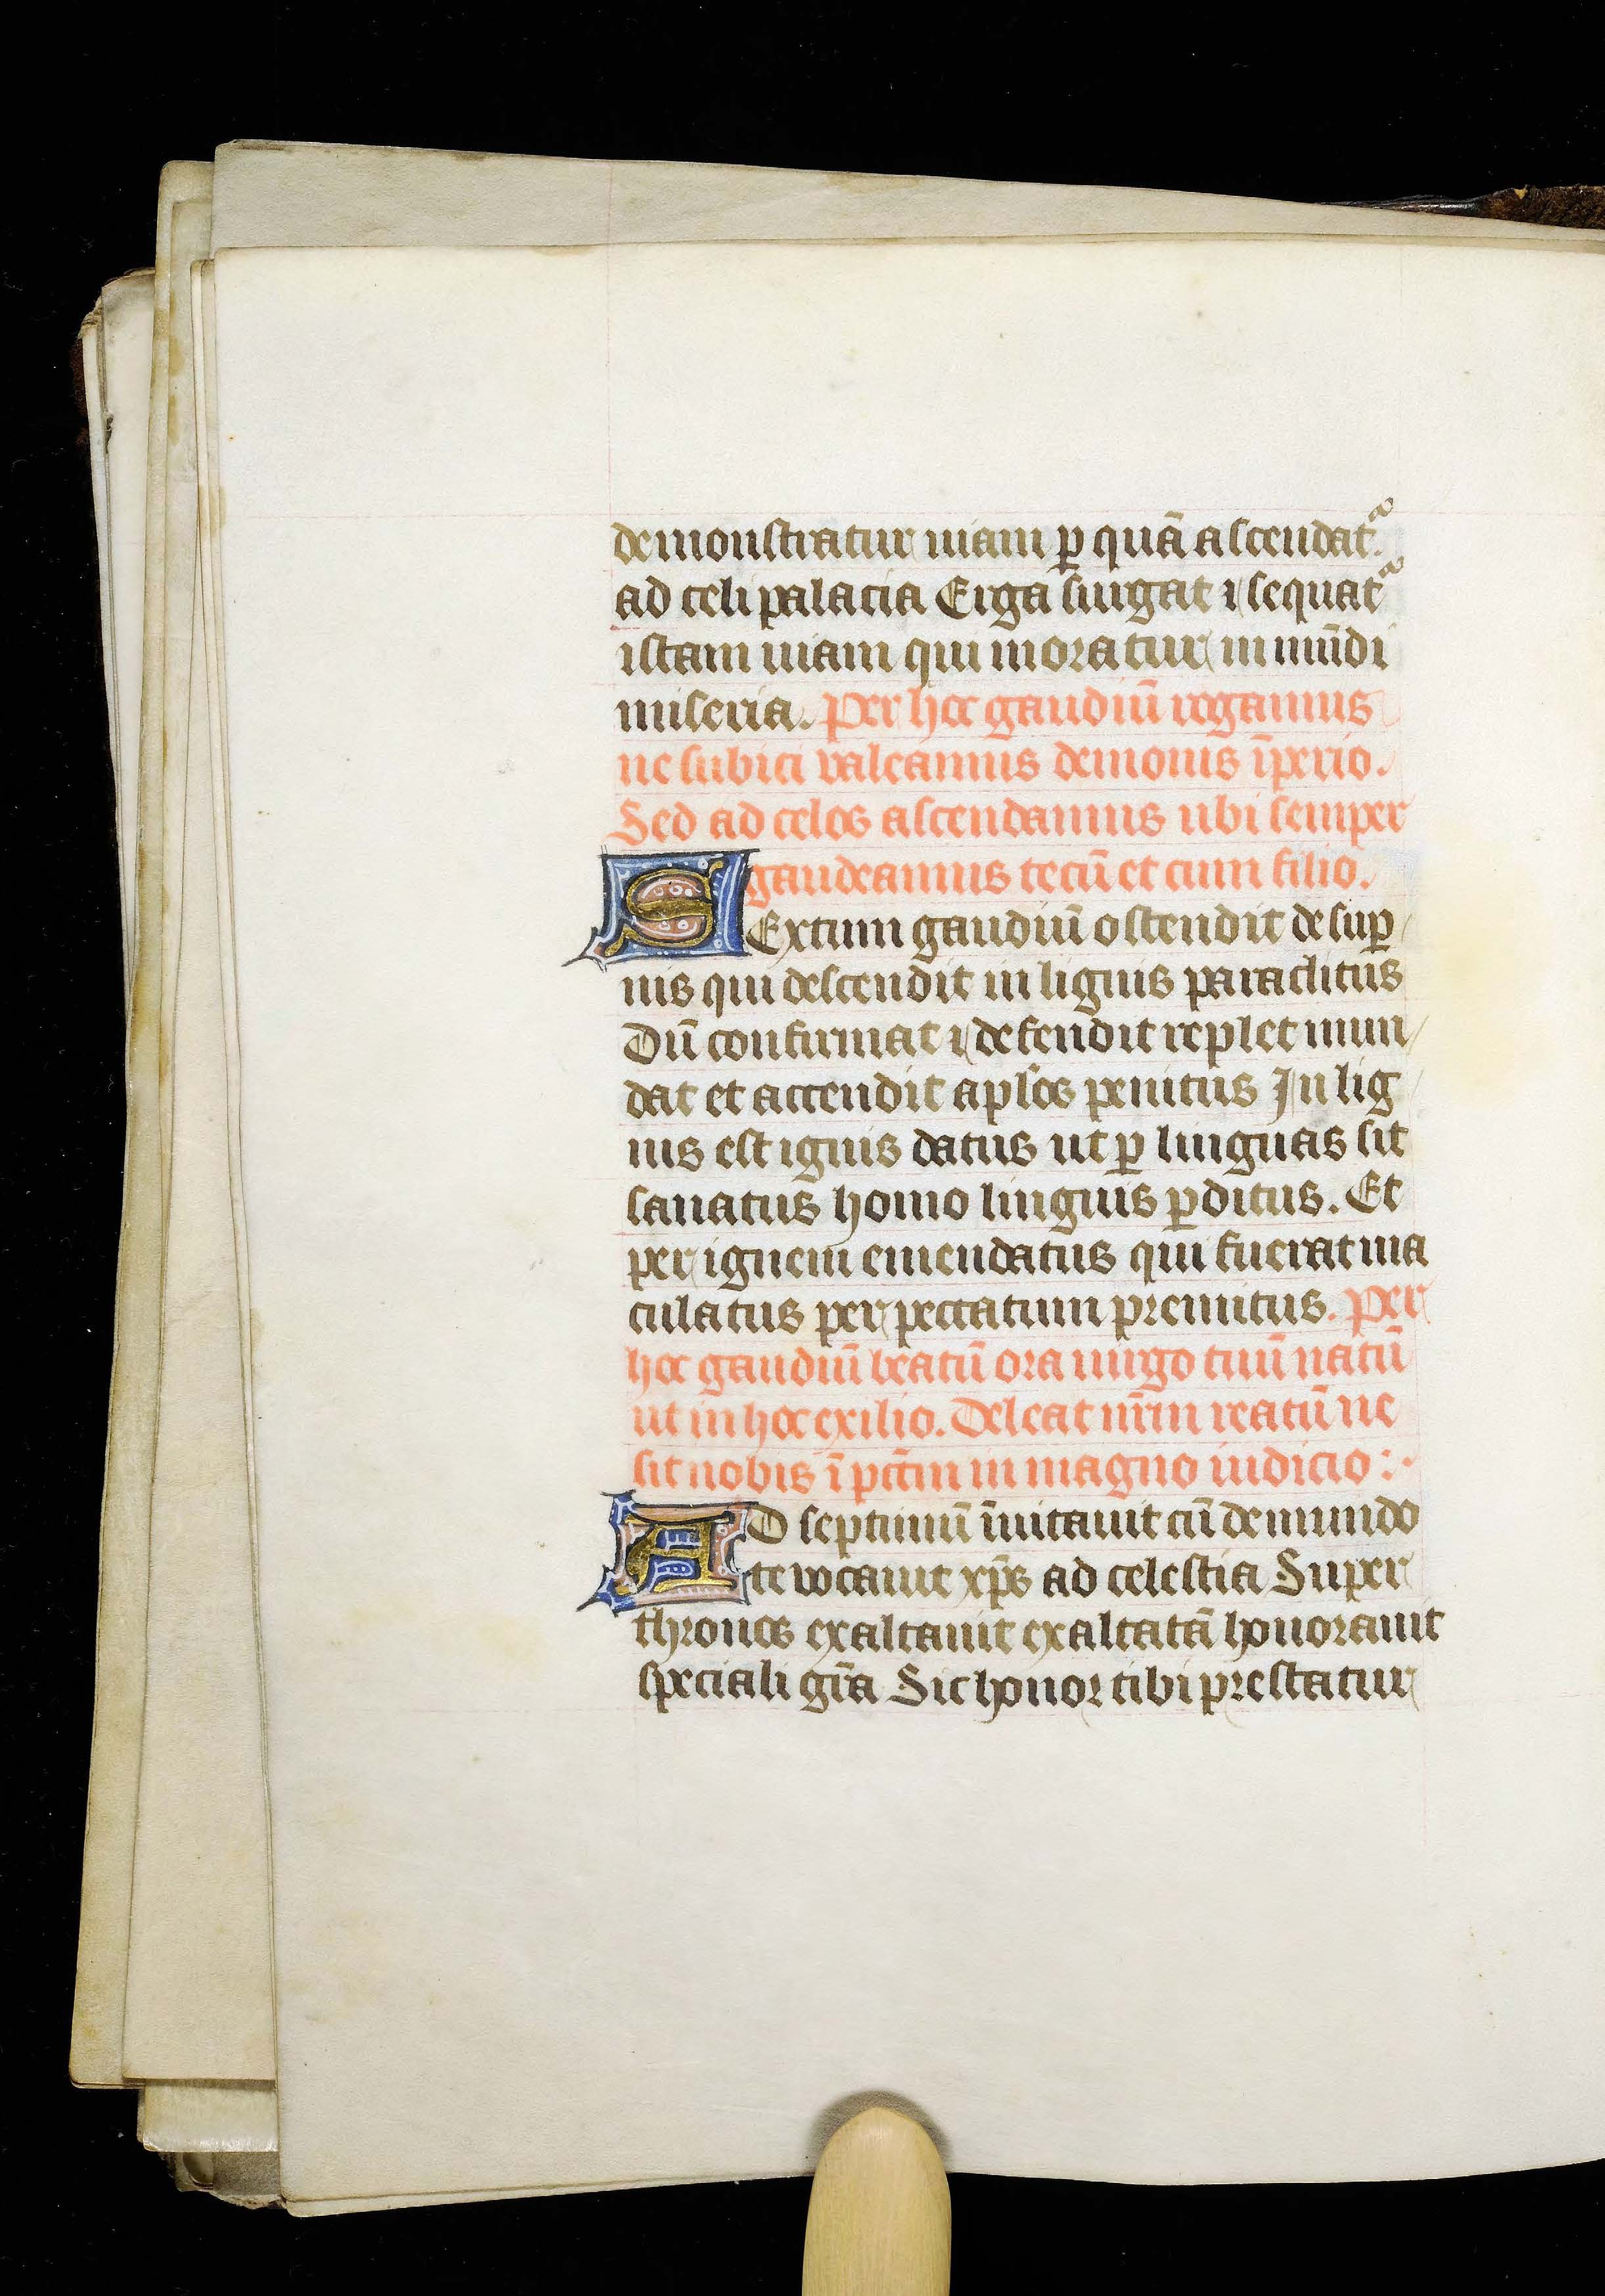 demonstratur uiam ꝑ quā ascendat᷑
ad celi palacia Erga surgat ⁊ sequat᷑
istam uiam qui moratur in mūdi
miseria. Per hoc gaudiū rogamus
ne subici valeamus demonis īperio.
Sed ad celos ascendamus ubi semper
gaudeamus tecū et cum filio.
SExtum gaudiū ostendit de suꝑ
nis qui descendit in lignis paraclitus
Dū confirmat ⁊ defendit replet mun
dat et accendit apl̄os penitus In lig
nis est ignis datus ut ꝑ linguas sit
sanatus homo linguis ꝑditus. Et
per ignem emendatus qui fuerat ma
culatus per peccatum premitus. Per
hoc gaudiū beatū ora uirgo tuū natū
ut in hoc exilio. Deleat nr̄m reatū ne
sit nobis ī pctm̄ in magno iudicio :·
AD septimū īuitauit cū de mundo
te uocauit xp̄s ad celestia Super
thronos exaltauit exaltatā honorauit
speciali gr̄a Sic honor tibi prestatur